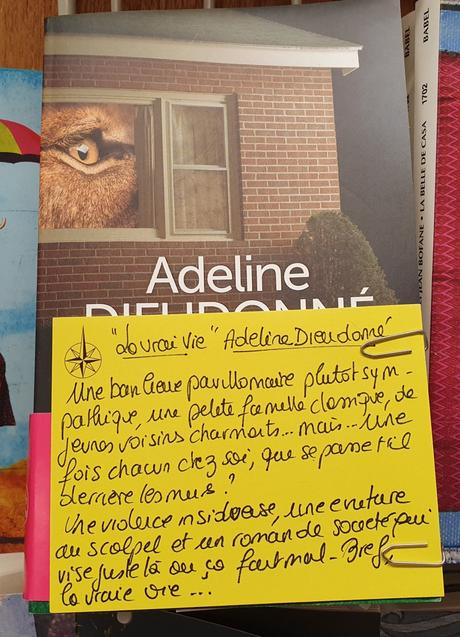 Adeline
DIEUDONNÉ
BABEL
BABEL
1702
JEAN BOFANE • LA BELLE DE CASA
"La vraie vie" Adeline Dieudonné
Une banlieue pavillonnaire plutôt sym-
pathique, une petite famille classique, de
jeunes voisins charmants... mais... une
fois chacun chez soi, que se passe-t-il
derrière les murs ?
Une violence insidieuse, une écriture
au scalpel et un roman de société qui
vise juste là où ça fait mal - Bref,
la vraie vie ...